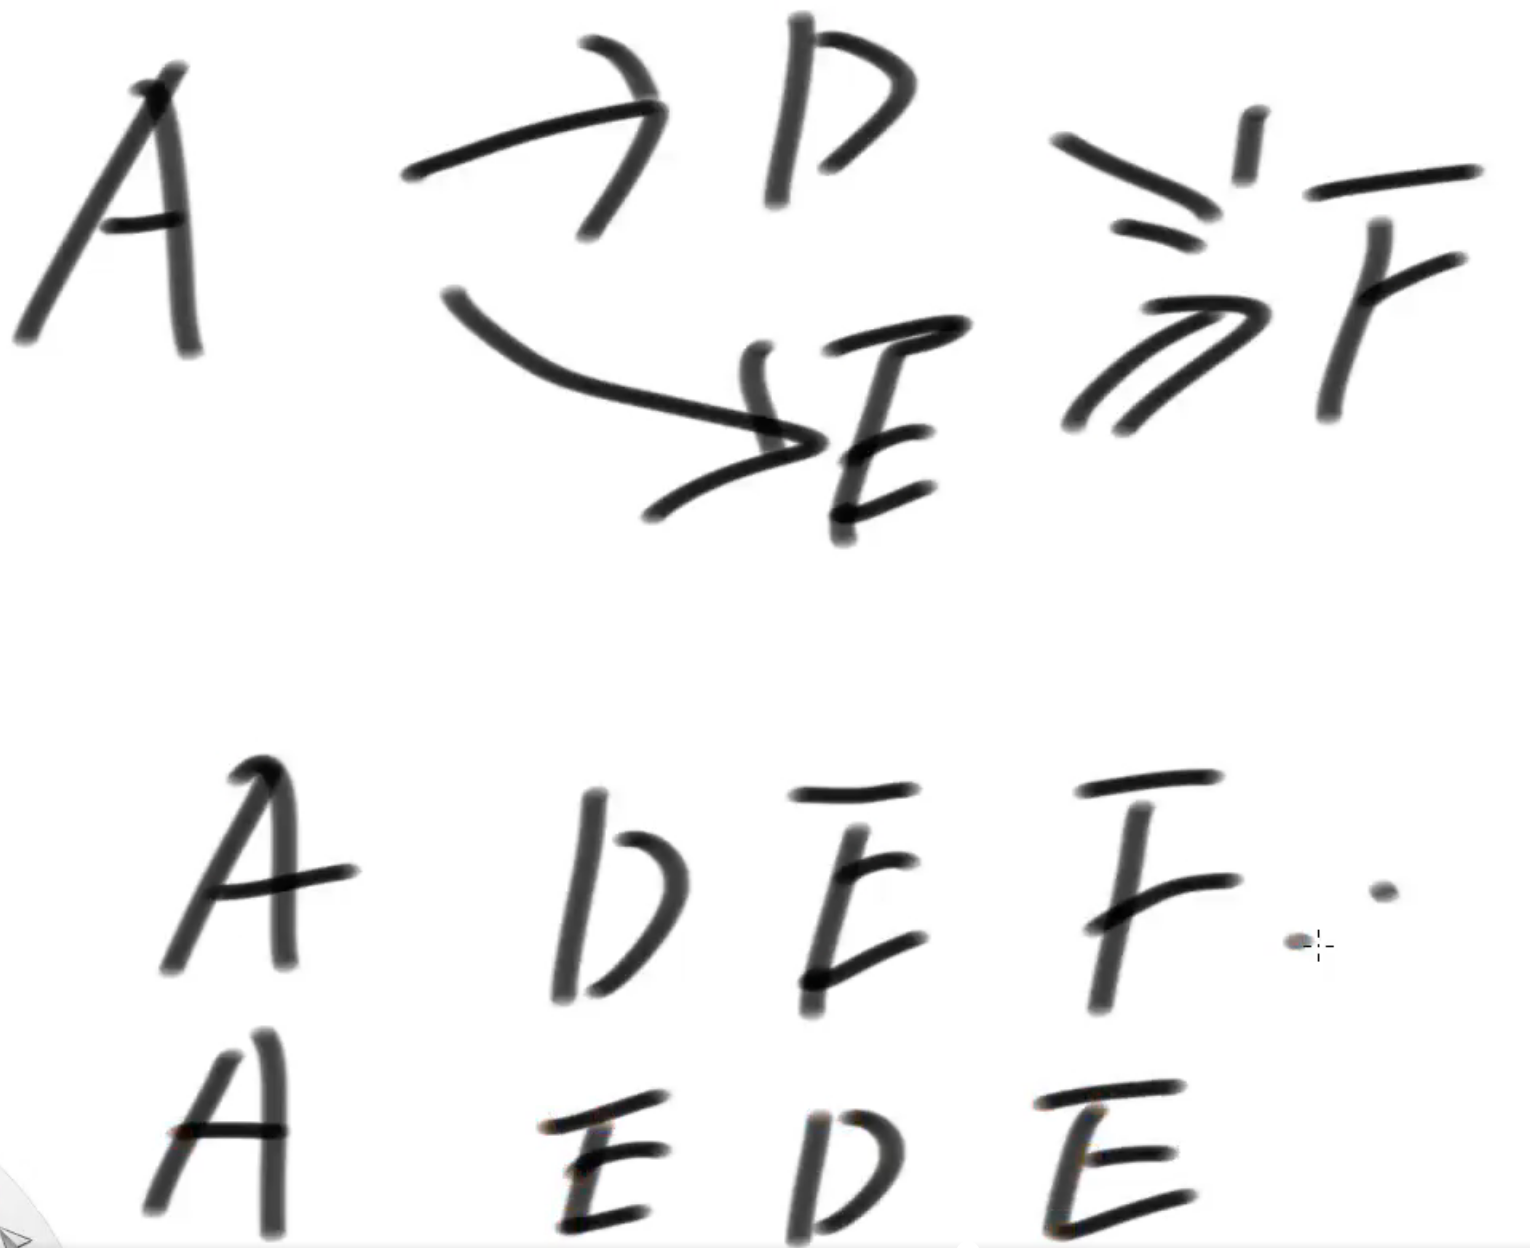 A → D ⇒ F
→ E
A D E F
A E D E